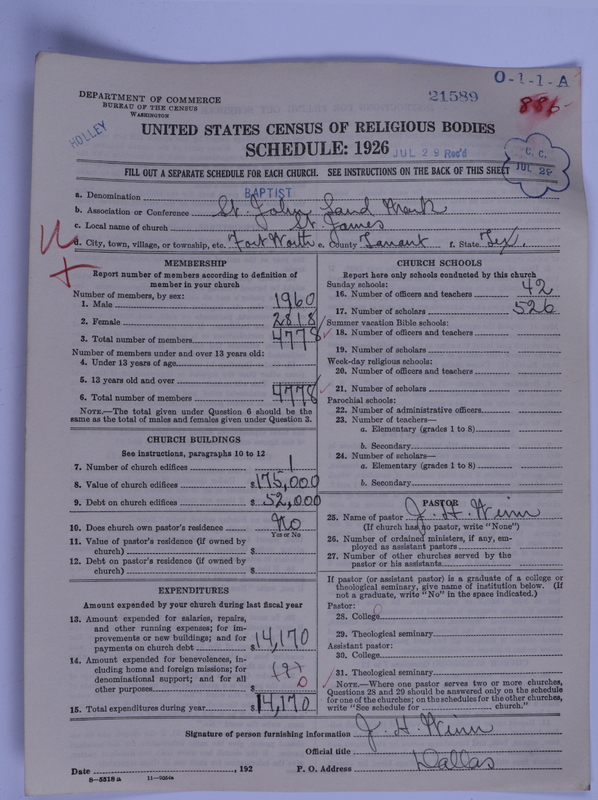 O-1-1-A
DEPARTMENT OF COMMERCE
BUREAU OF THE CENSUS
WASHINGTON
21589
886
HOLLEY
UNITED STATES CENSUS OF RELIGIOUS BODIES
SCHEDULE: 1926
JUL 29 Rec'd
C. C.
JUL 28
FILL OUT A SEPARATE SCHEDULE FOR EACH CHURCH. SEE INSTRUCTIONS ON THE BACK OF THIS SHEET
a. Denomination BAPTIST
b. Association or Conference St. John Land Mark
c. Local name of church St James
d. City, town, village, or township, etc. Fort Worth e. County Tarrant f. State Tex.
MEMBERSHIP
Report number of members according to definition of
member in your church
Number of members, by sex:
1. Male 1960
2. Female 2818
3. Total number of members 4778
Number of members under and over 13 years old:
4. Under 13 years of age
5. 13 years old and over
6. Total number of members 4778
NOTE.—The total given under Question 6 should be the
same as the total of males and females given under Question 3.
CHURCH BUILDINGS
See instructions, paragraphs 10 to 12
7. Number of church edifices 1
8. Value of church edifices $175,000
9. Debt on church edifices $52,000
10. Does church own pastor's residence No
Yes or No
11. Value of pastor's residence (if owned by
church) $
12. Debt on pastor's residence (if owned by
church) $
EXPENDITURES
Amount expended by your church during last fiscal year
13. Amount expended for salaries, repairs,
and other running expenses; for im-
provements or new buildings; and for
payments on church debt $14,170
14. Amount expended for benevolences, in-
cluding home and foreign missions; for
denominational support; and for all
other purposes $
(?)
0
15. Total expenditures during year $14,170
CHURCH SCHOOLS
Report here only schools conducted by this church
Sunday schools:
16. Number of officers and teachers 42
17. Number of scholars 526
Summer vacation Bible schools:
18. Number of officers and teachers
19. Number of scholars
Week-day religious schools:
20. Number of officers and teachers
21. Number of scholars
Parochial schools:
22. Number of administrative officers
23. Number of teachers—
a. Elementary (grades 1 to 8)
b. Secondary
24. Number of scholars—
a. Elementary (grades 1 to 8)
b. Secondary
PASTOR
25. Name of pastor J. H. Winn
(If church has no pastor, write "None")
26. Number of ordained ministers, if any, em-
ployed as assistant pastors
27. Number of other churches served by the
pastor or his assistants
If pastor (or assistant pastor) is a graduate of a college or
theological seminary, give name of institution below. (If
not a graduate, write "No" in the space indicated.)
Pastor:
28. College 0
29. Theological seminary
Assistant pastor:
30. College
31. Theological seminary
NOTE.—Where one pastor serves two or more churches,
Questions 28 and 29 should be answered only on the schedule
for one of the churches; on the schedules for the other churches,
write "See schedule for church."
Signature of person furnishing information J. H. Winn
Official title
Date , 192 P. O. Address Dallas
8-5518 a 11-9064a